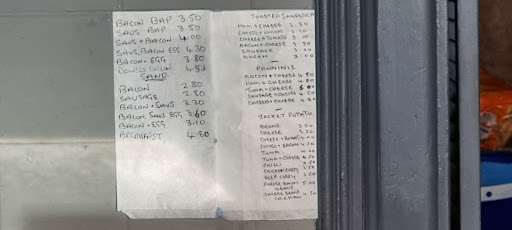 BACON BAP 3.50
SAUS BAP 3.50
SAUS + BACON 4.00
SAUS, BACON EGG 4.30
BACON + EGG 3.80
DOUBLE BACON 4.50
SAND
BACON 2.80
SAUSAGE 2.80
BACON + SAUS 3.30
BACON SAUS EGG 3.60
BACON + EGG 3.10
BREAKFAST 4.80
TOASTED SANDWICH
HAM + CHEESE 3.30
CHEESE + ONION
CHEESE + TOMATO
BACON + CHEESE 3.30
SAUSAGE
BACON
PANNINIS
BACON + CHEESE 4.50
HAM + CHEESE
TUNA + CHEESE
SAUSAGE + CHEESE
CHICKEN + CHEESE
JACKET POTATO
BEANS
CHEESE
CHEESE + BEANS
CHEESE + BACON
TUNA
TUNA + CHEESE
CHILLI
CHICKEN CURRY
BEEF CURRY
CHEESE BACON BEANS
CHEESE BACON COLESLAW